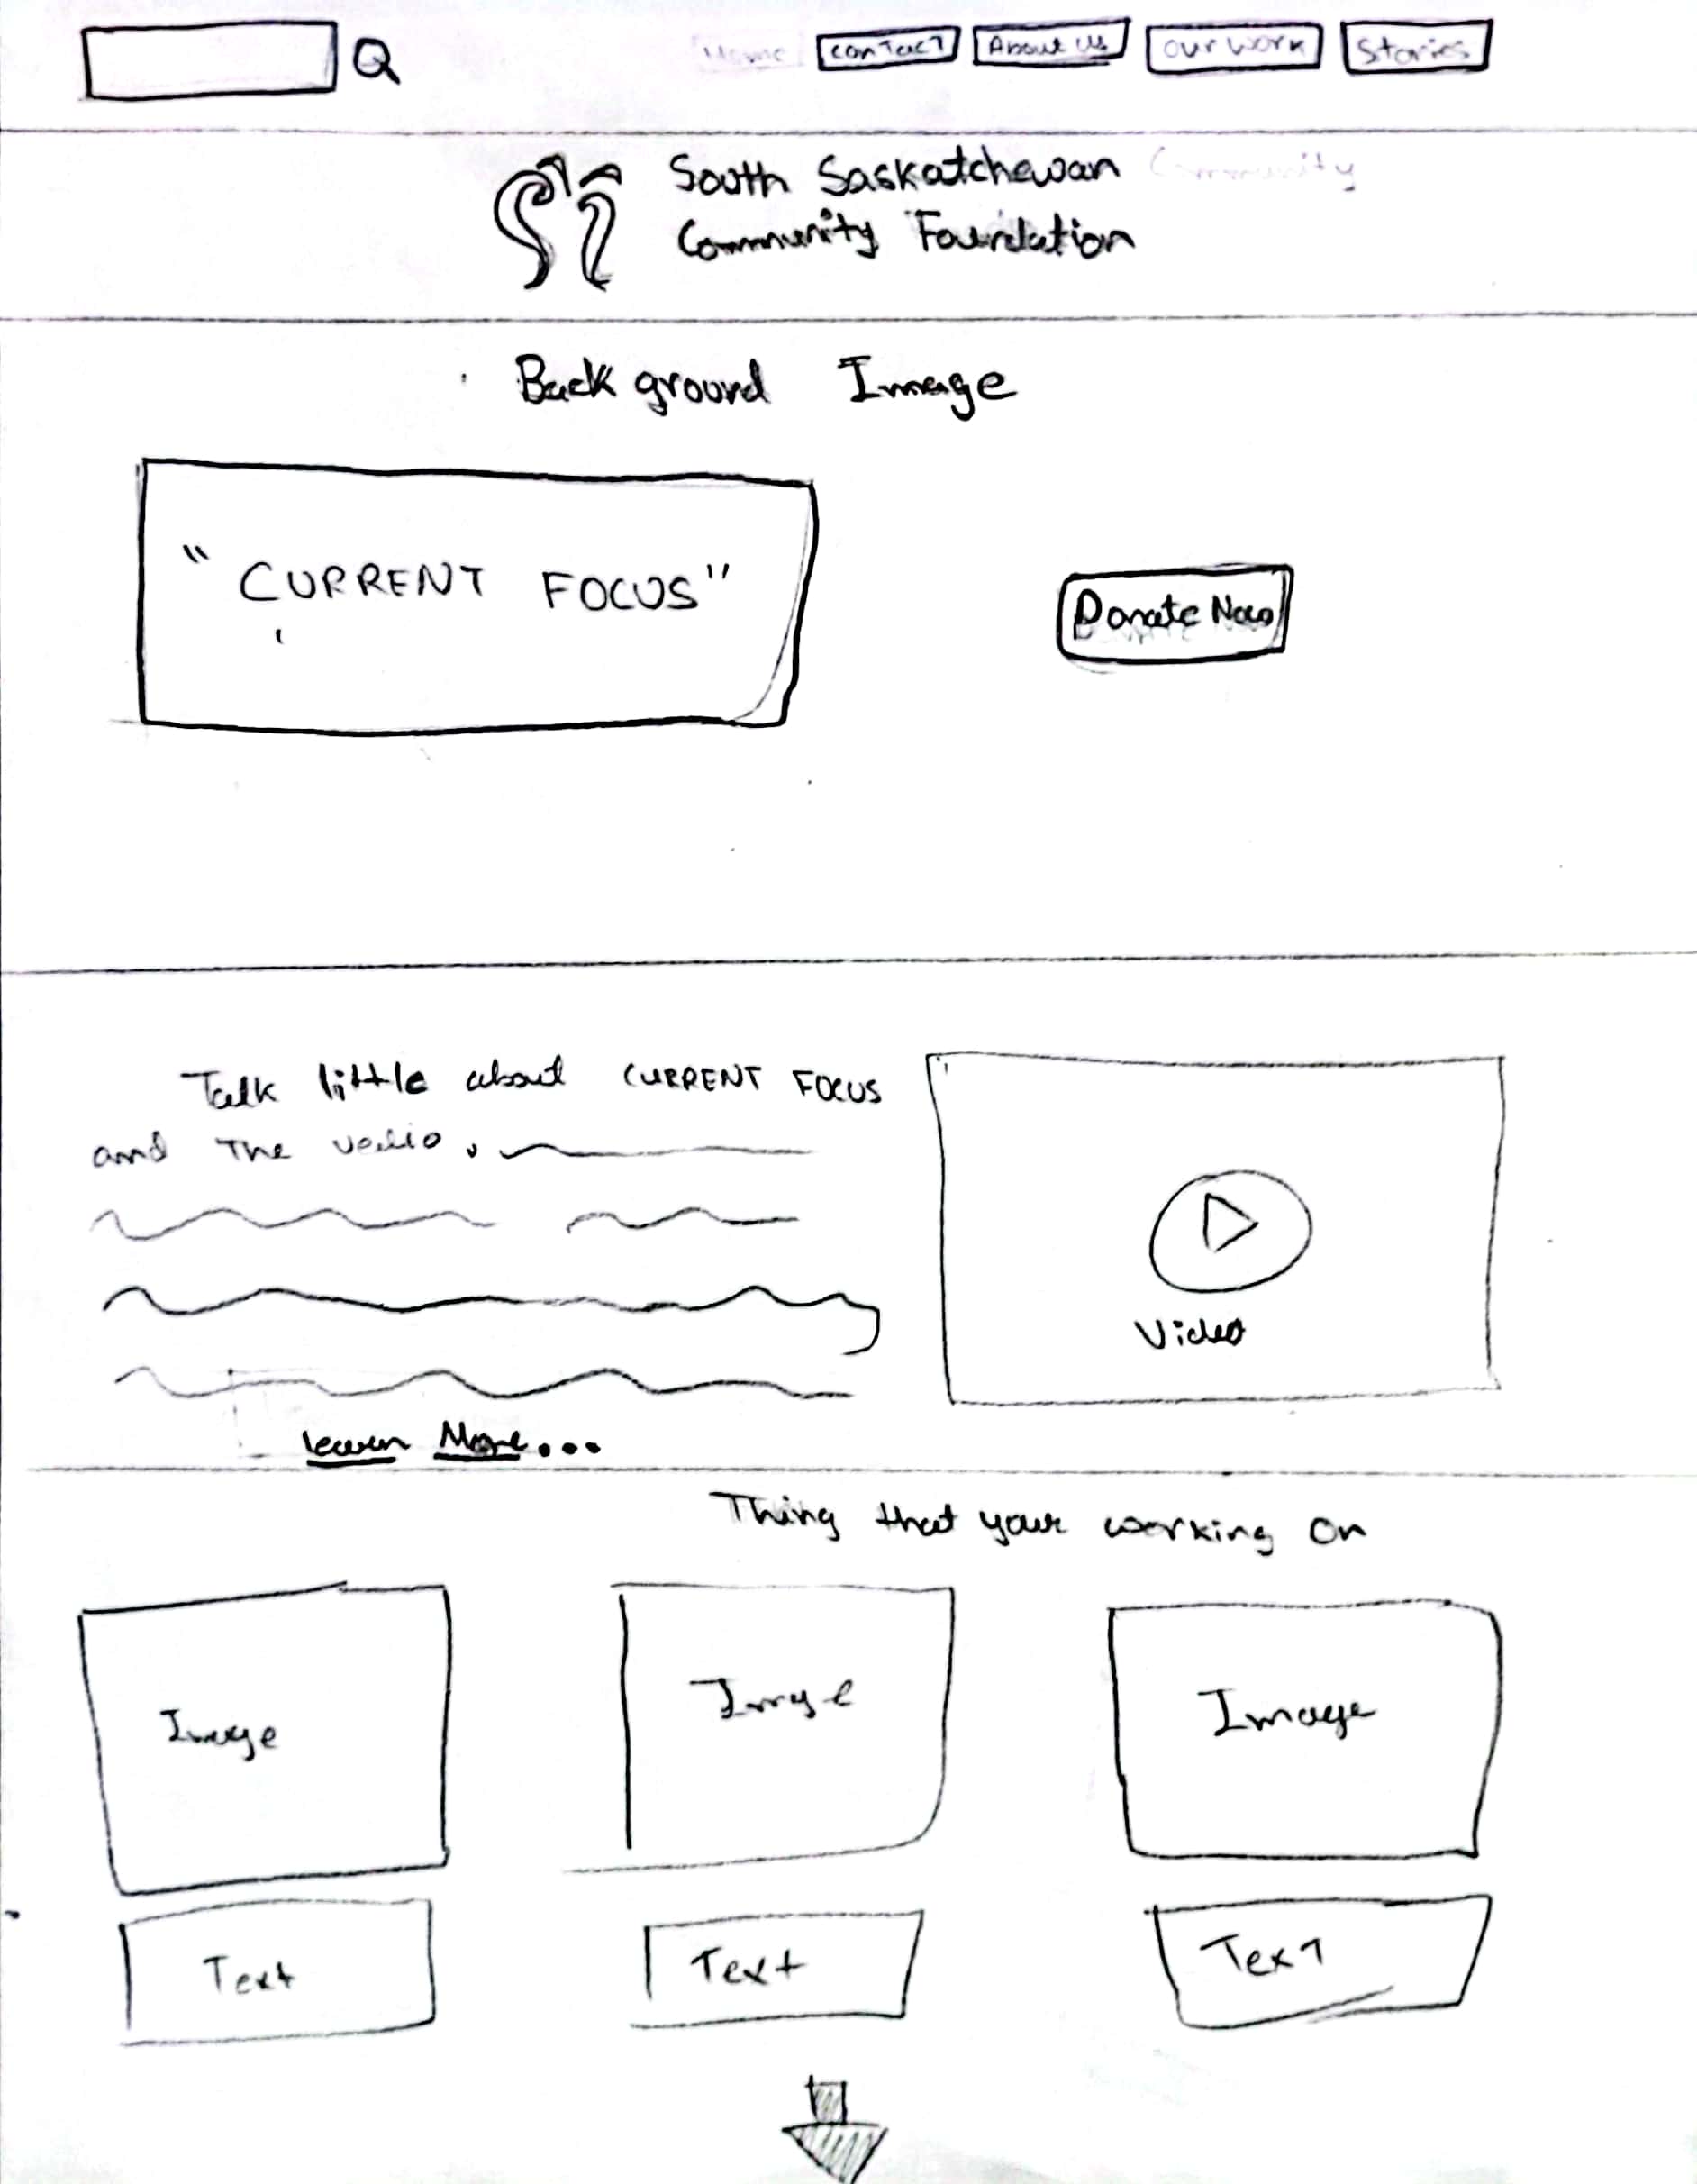 Home contact About Us our work Stories
South Saskatchewan Community
Community Foundation
Back ground Image
" CURRENT FOCUS"
Donate Now
Talk little about CURRENT FOCUS
and The
Video
learn More...
Thing that your working on
Image Image Image
Text Text Text